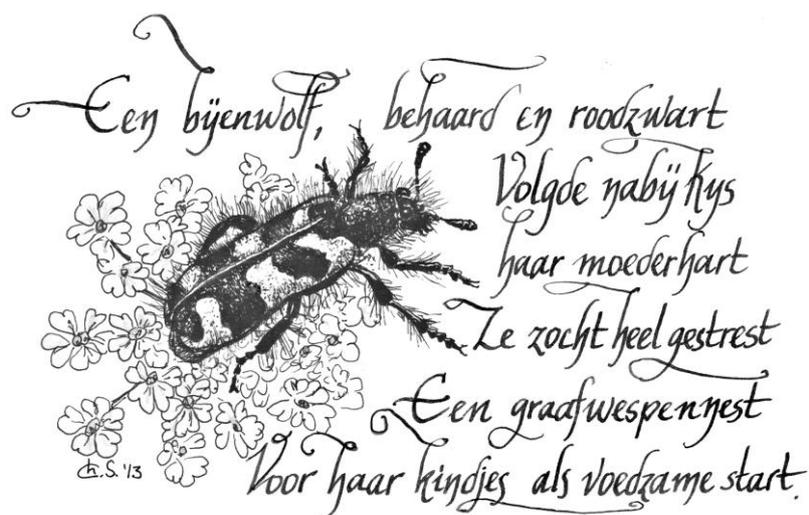 Een bijenwolf, behaard en roodzwart
Volgde nabij Kys
haar moederhart
Ze zocht heel gestrest
Een graafwespennest
Voor haar kindjes als voedzame start.
Ch.S.'13